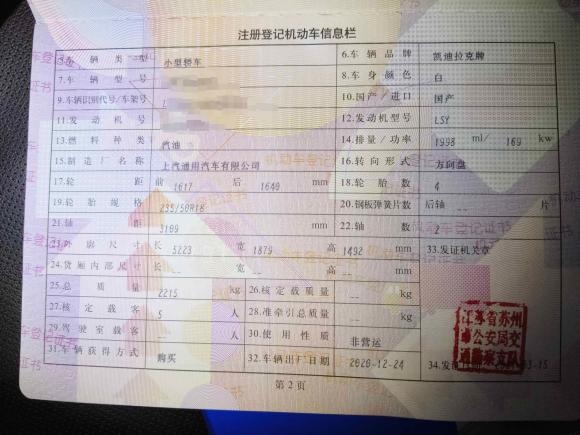 注册登记机动车信息栏
5.车辆类型 小型轿车 6.车辆品牌 凯迪拉克牌
7.车辆型号 8.车身颜色 白
9.车辆识别代号/车架号 10.国产/进口 国产
11.发动机号 12.发动机型号 LSY
13.燃料种类 汽油 14.排量/功率 1998 ml/ 169 kw
15.制造厂名称 上汽通用汽车有限公司 16.转向形式 方向盘
17.轮距 前 1617 后 1640 mm 18.轮胎数 4
19.轮胎规格 235/50R18 20.钢板弹簧片数 后轴 -- 片
21.轴距 3109 mm 22.轴数 2
23.外廓尺寸 长 5223 宽 1879 高 1492 mm 33.发证机关章
24.货厢内部尺寸 长 -- 宽 -- 高 -- mm
25.总质量 2215 kg 26.核定载质量 -- kg
27.核定载客 5 人 28.准牵引总质量 -- kg
29.驾驶室载客 -- 人 30.使用性质 非营运
31.车辆获得方式 购买 32.车辆出厂日期 2020-12-24 34.发证日期
江苏省苏州
市公安局交
通警察支队
第2页